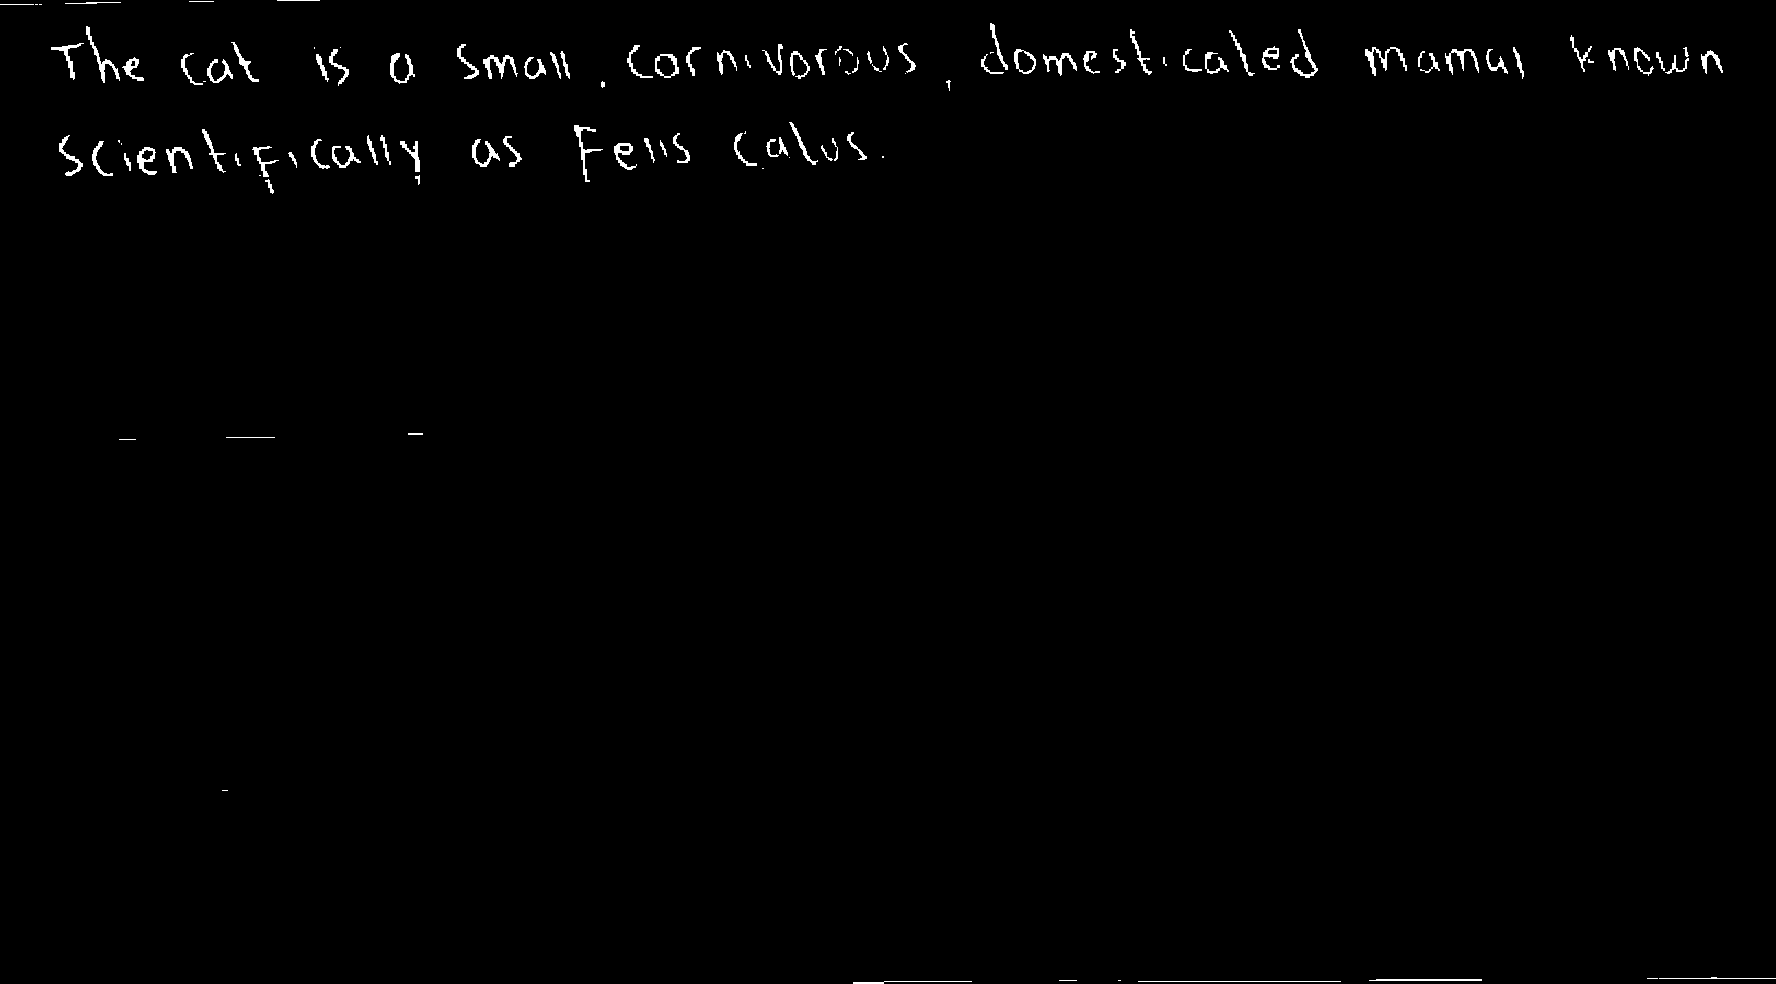 The cat is a small, carnivorous, domesticated mamal known
scientifically as Felis catus.